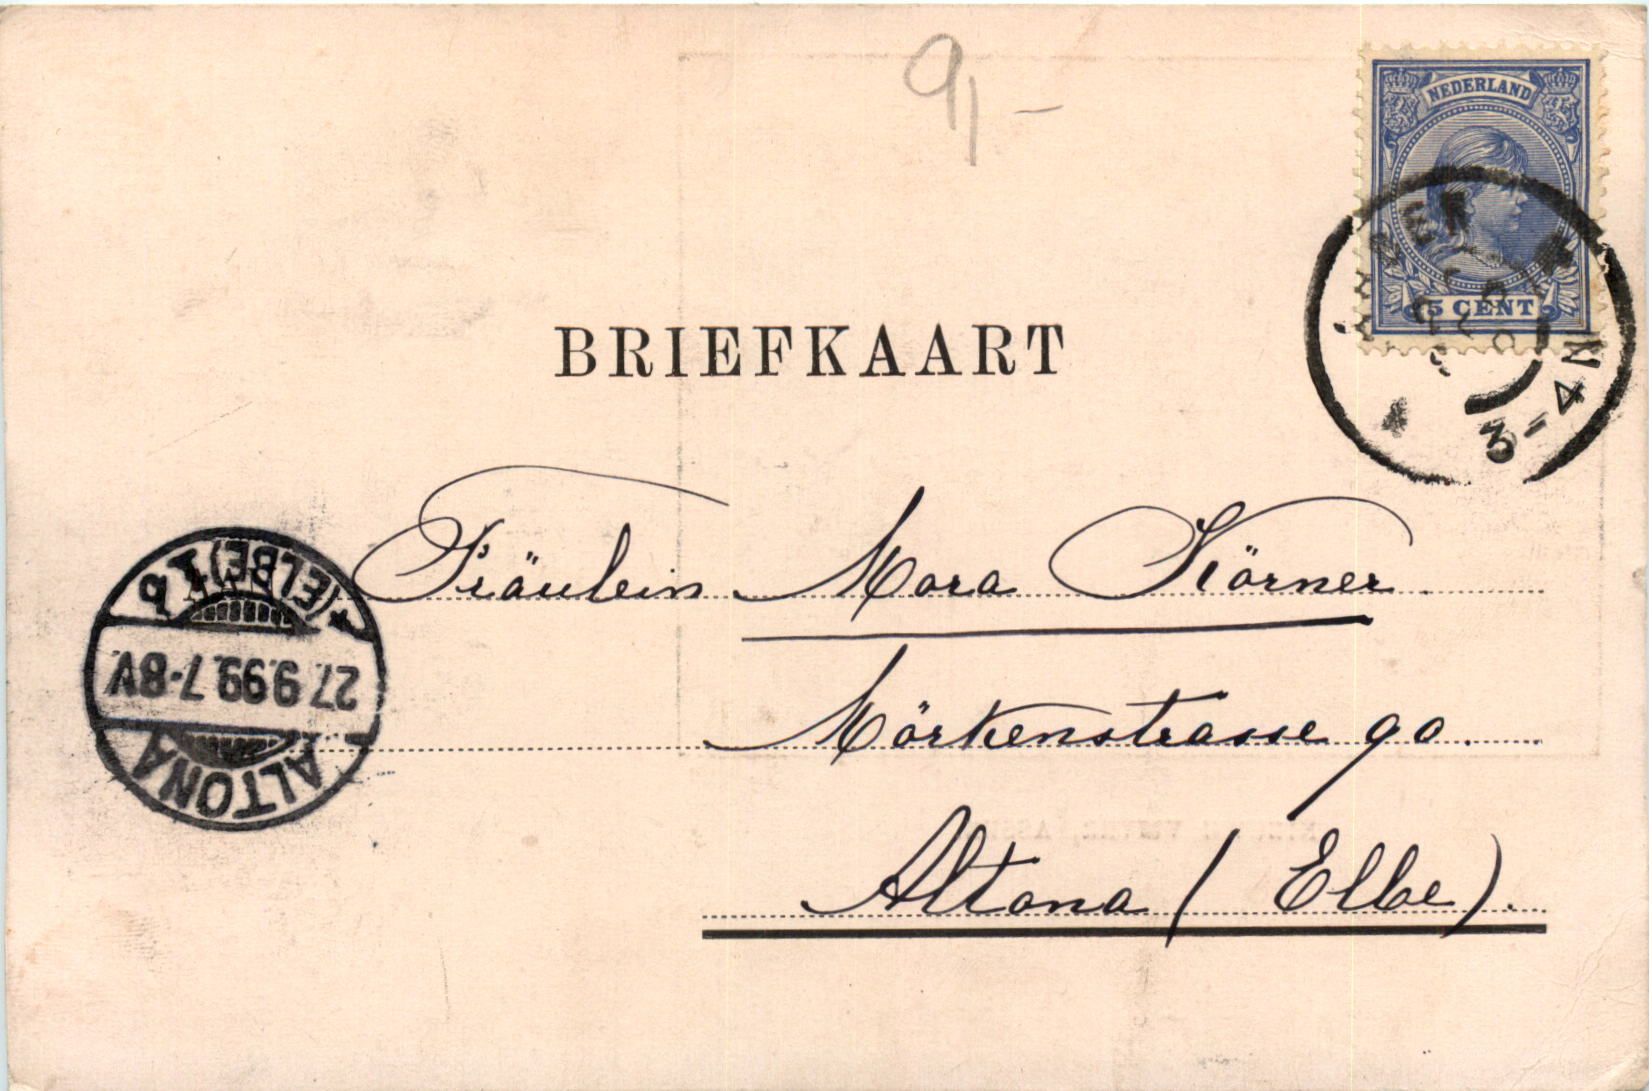 9,-
NEDERLAND
5 CENT
3-4N
BRIEFKAART
Fräulein Mora Körner
Mörkenstrasse 90.
Altona (Elbe).
ALTONA
27.9.99.7-8V.
(ELBE) 1